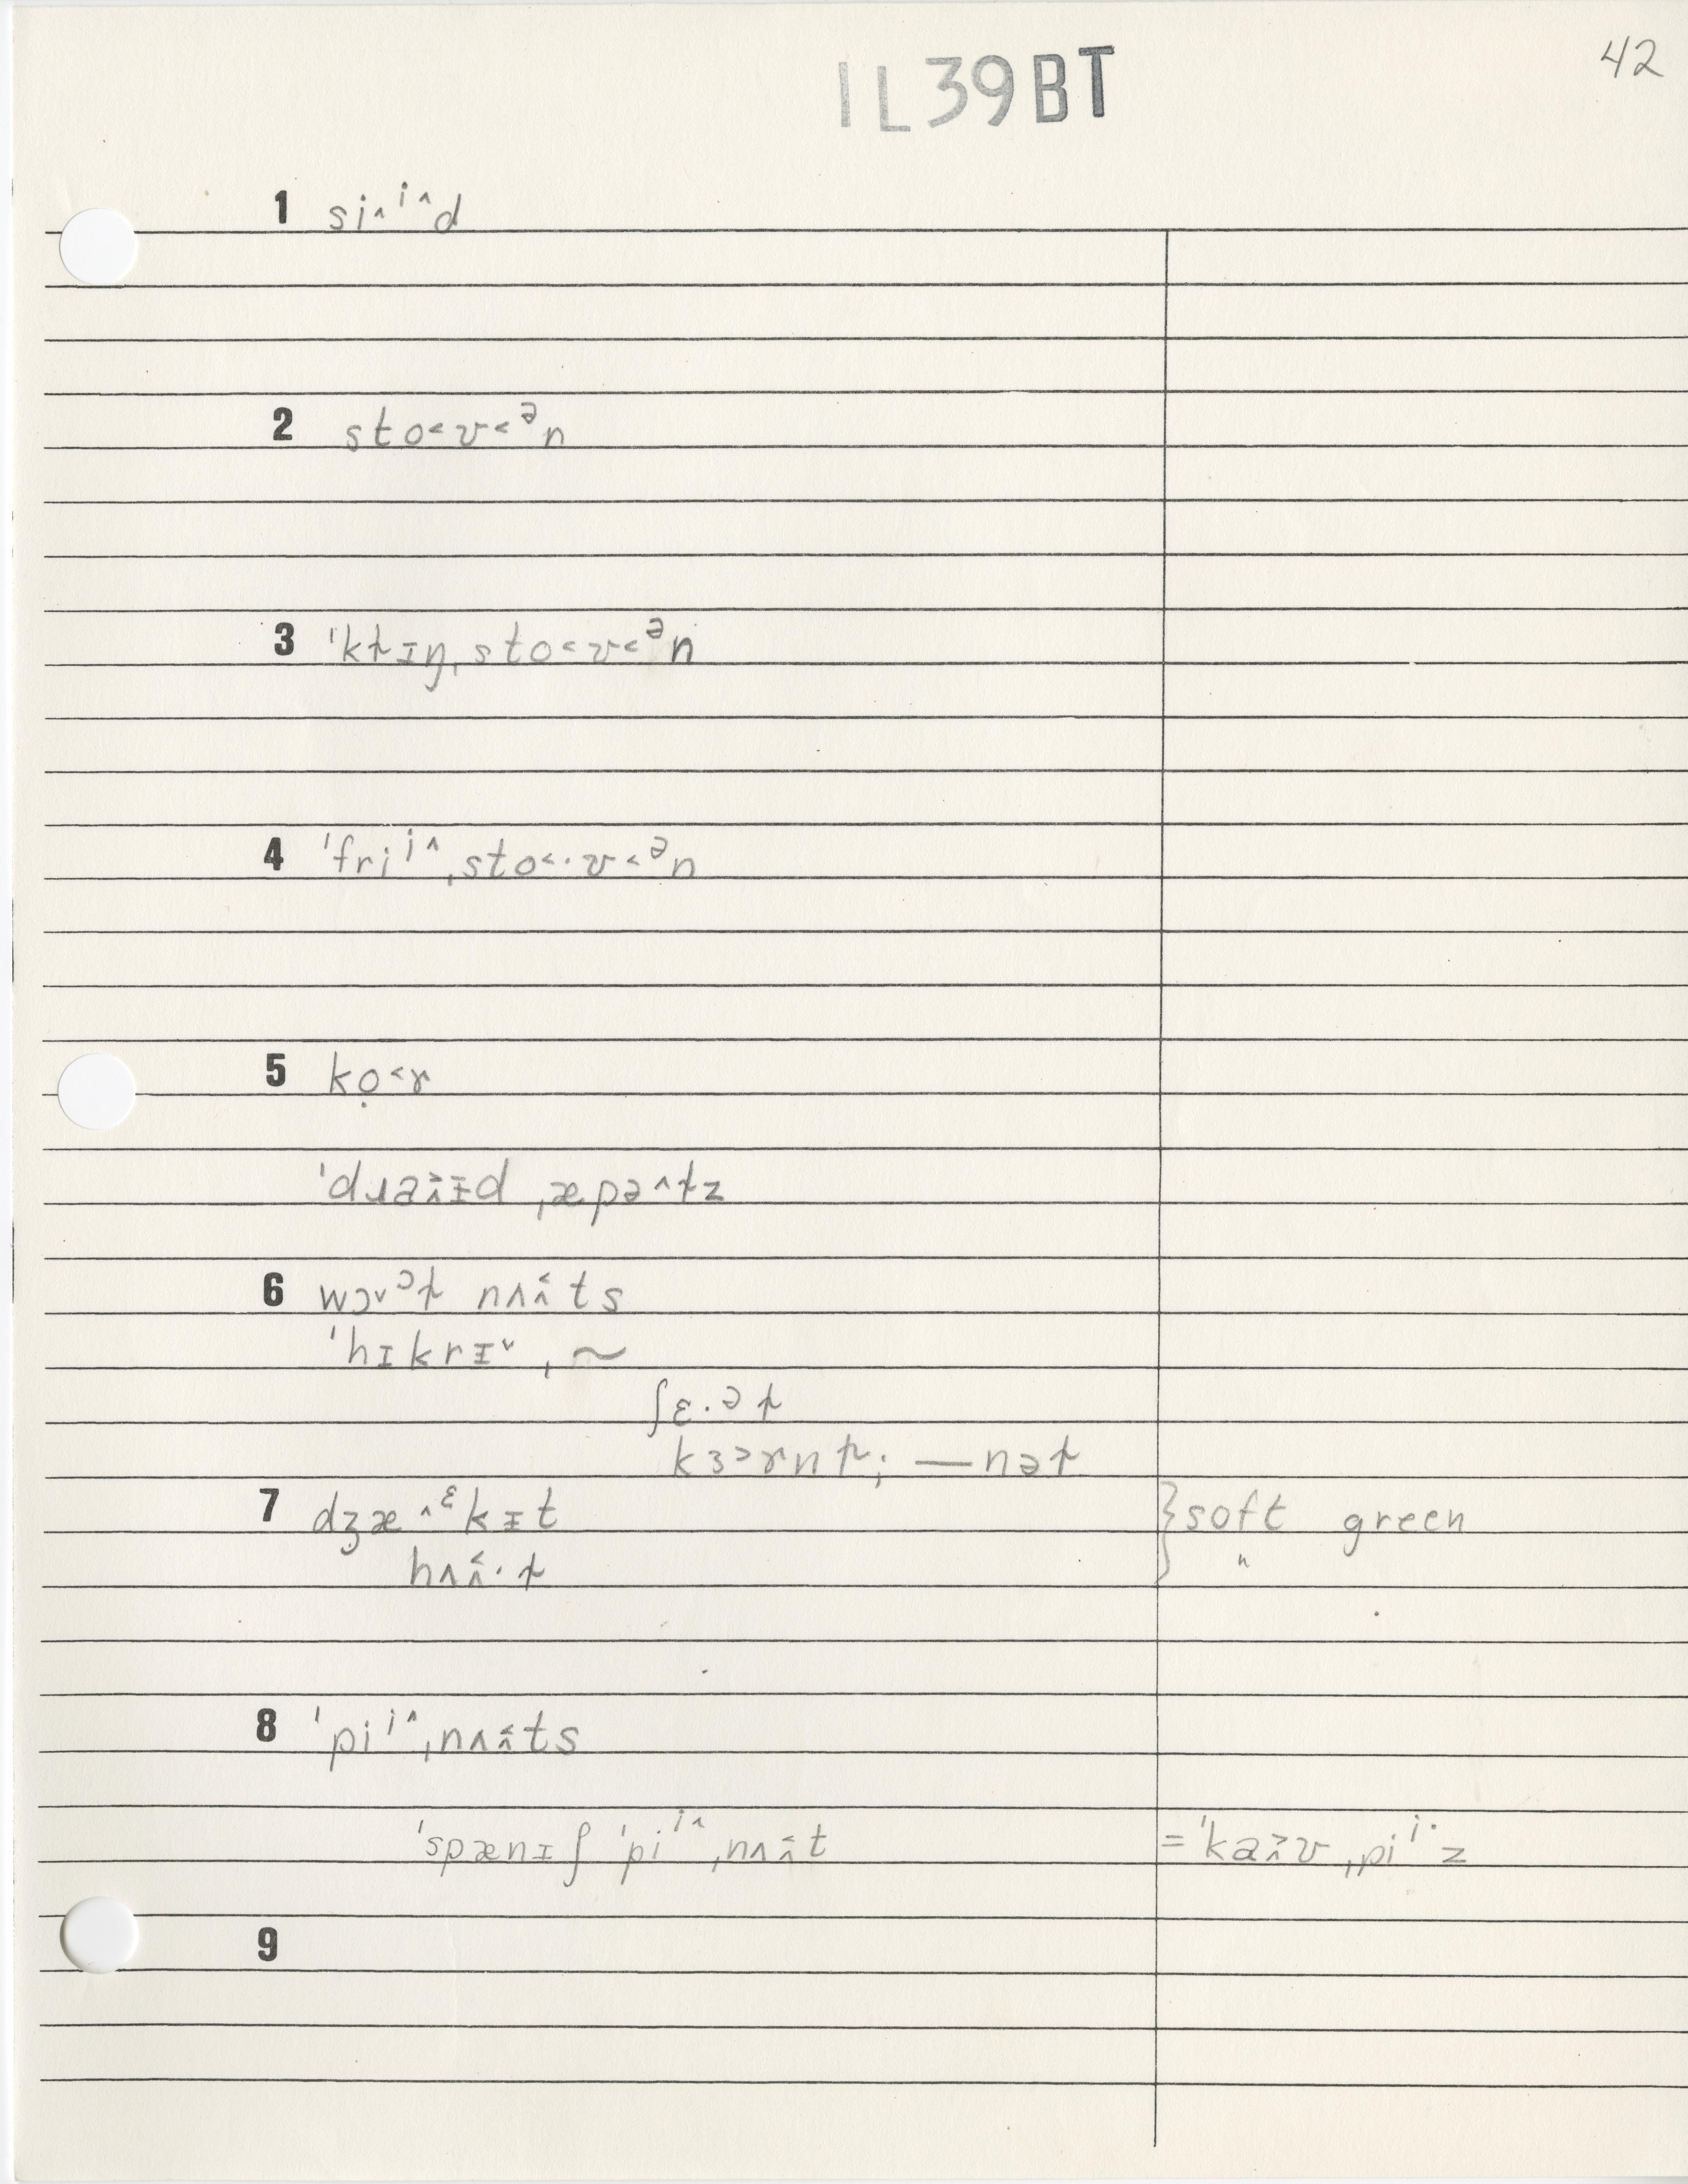 42
IL39BT
1 si˄ⁱ˄d
2 sto˂ʊ˂ᵊn
3 ˈkɫɪŋˌsto˂ʊ˂ᵊn
4 ˈfriⁱ˄ˌsto˂·ʊ˂ᵊn
5 kọ˂ɤ
ˈdɹaɪ̵d ˌæpə˄ɫz
6 wɔ˅ᵓɫ nʌi̭ts
ˈhɪkrɪ̵˅ ˌ~
ʃɛ·əɫ
kɜ˃ɤnɫ; —nəɫ
7 dʒæ˄ᵋkɪ̵t }soft green
hʌi̭·ɫ } "
8 ˈpiⁱ˄ˌnʌi̭ts
ˈspænɪʃ ˈpiⁱ˄ˌnʌi̭t =ˈkaʊˌpiⁱ·z
9